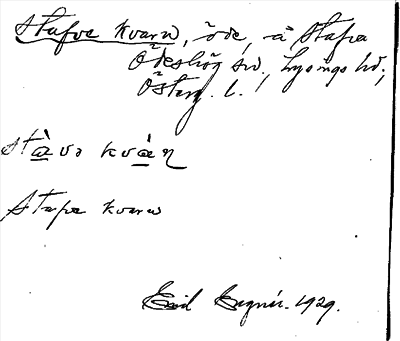 Stafve kvarn, öde, å Stafva
Ödeshög sn, Lysings hd,
Österg. l.
stàvə kvàɳ
Stafva kvarn
Emil Lagnér. 1929.